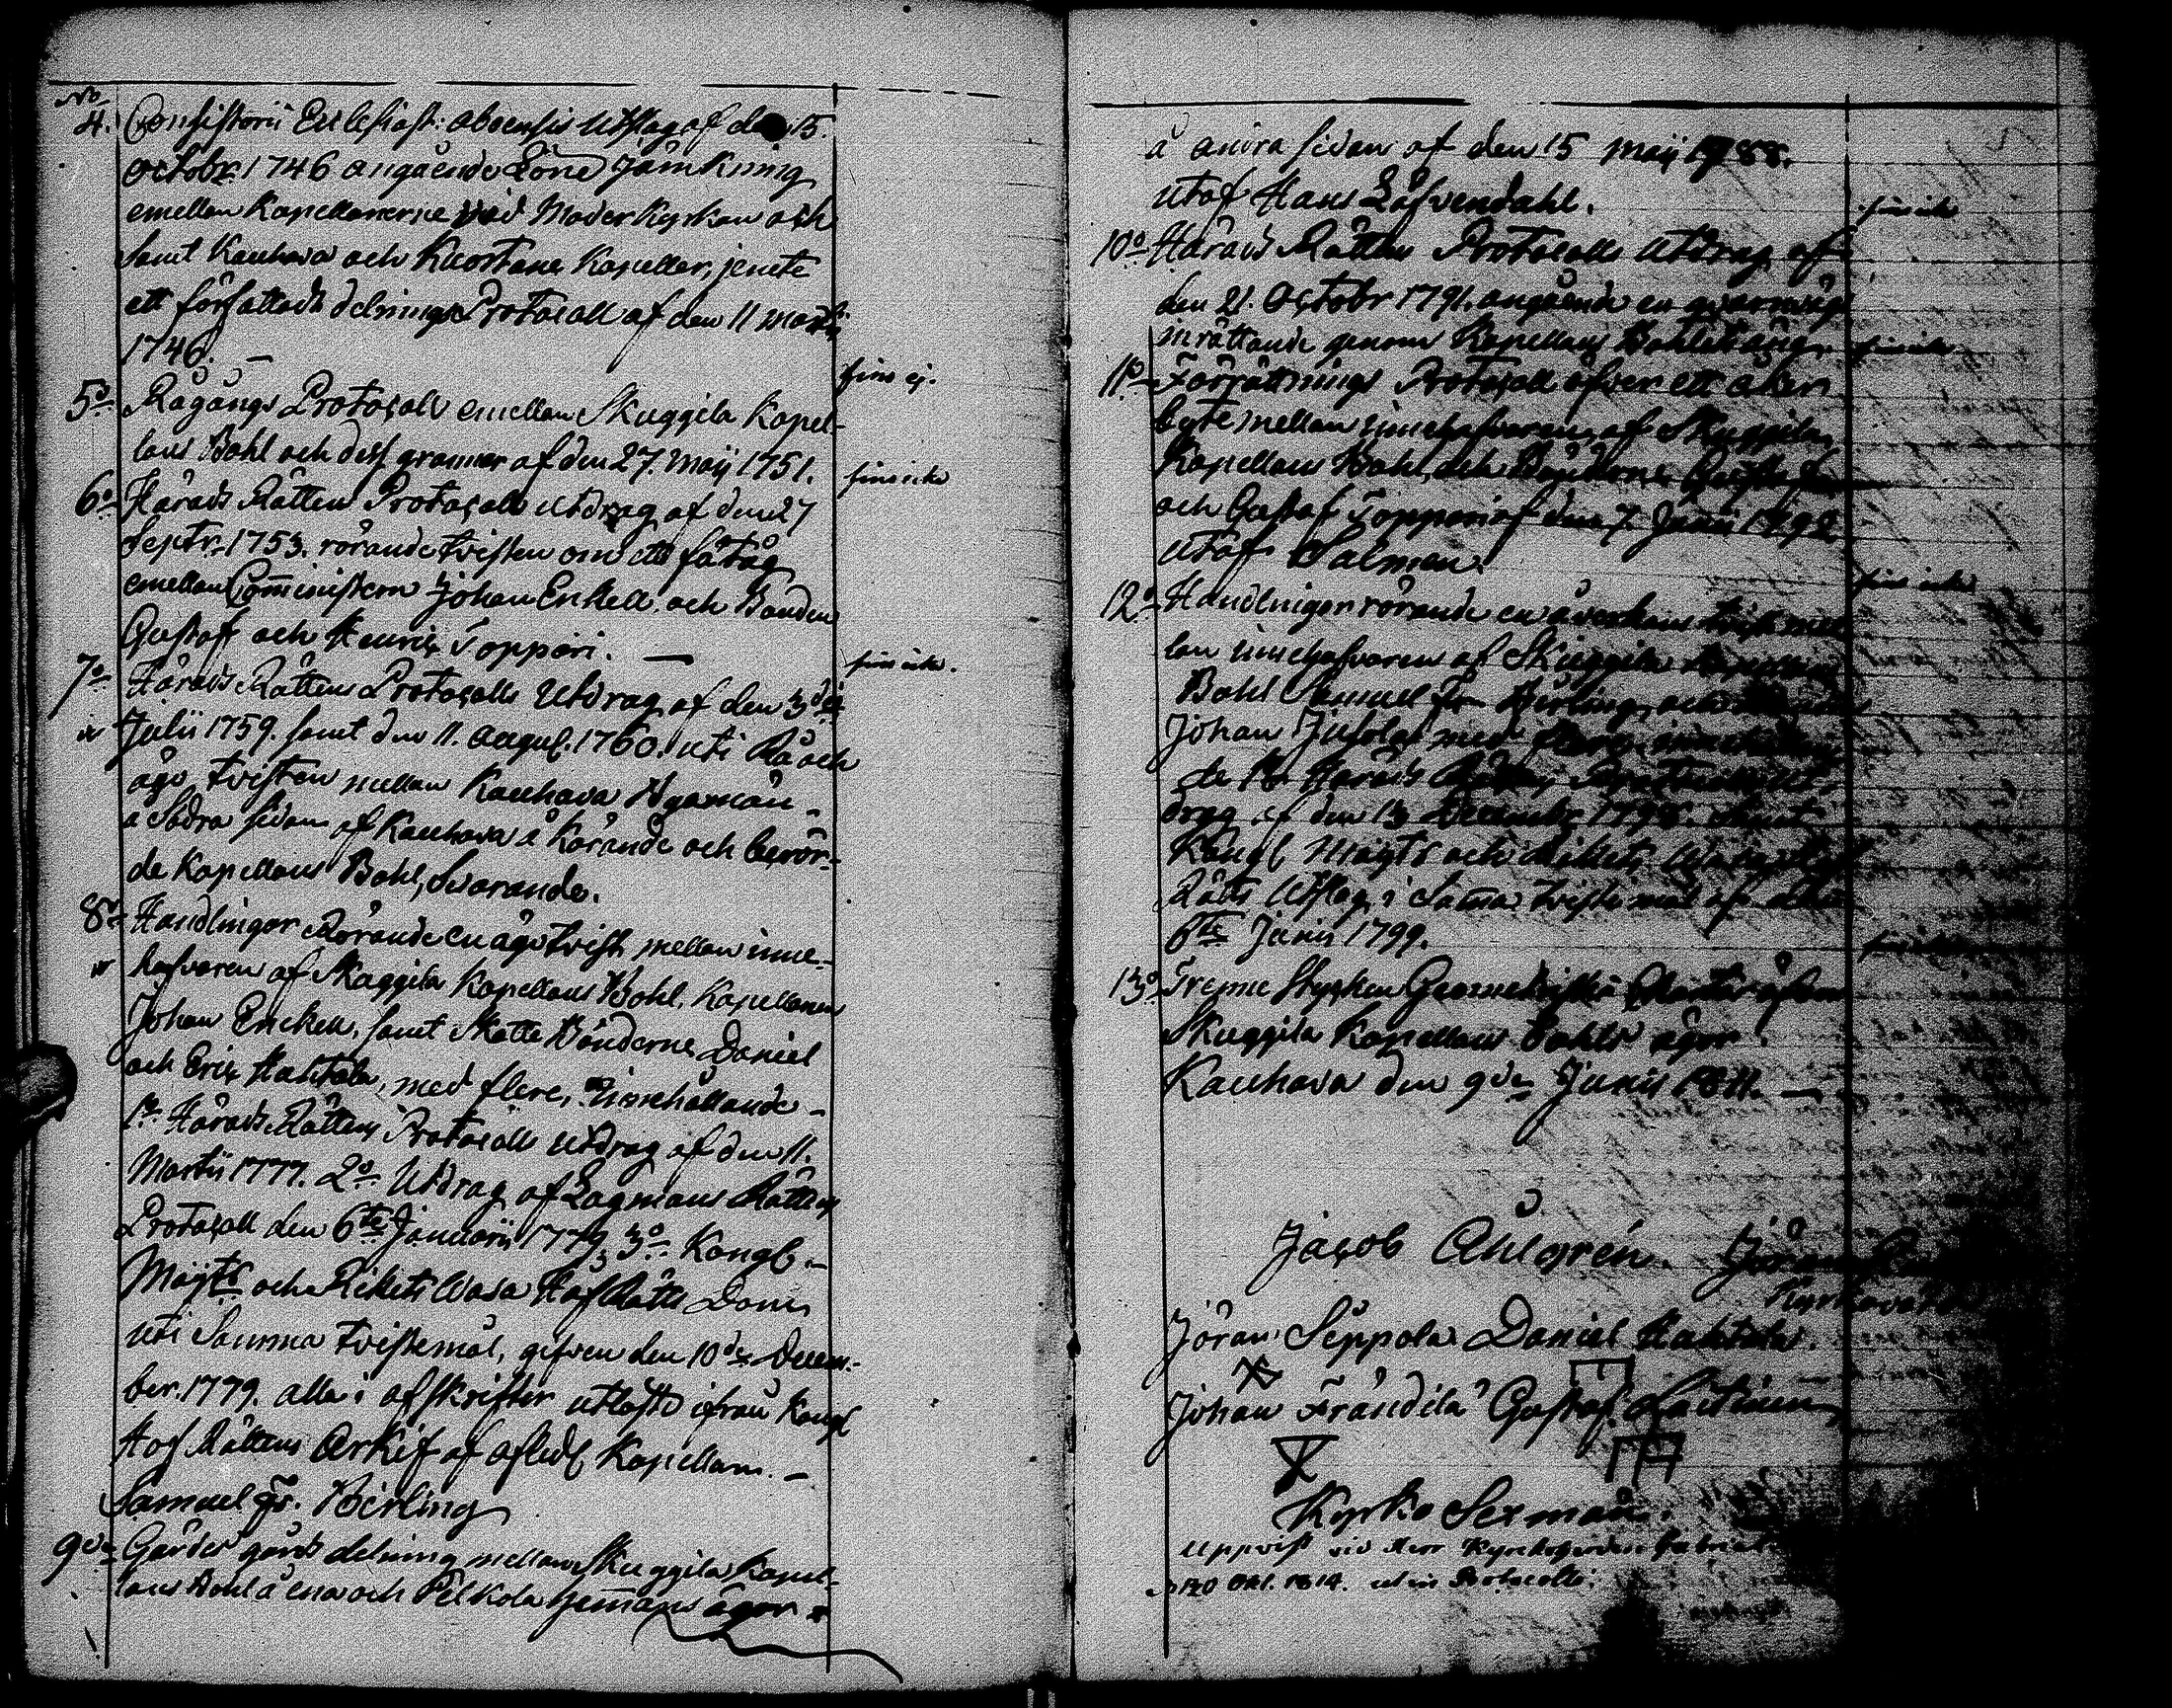 No
4. Consistorii Ecclesiast: aboensis Utslag af den 15.
octobr. 1746 angående Löne Jämkning
emellan Kapellanerne vid Moder Kyrkan och
samt Kauhava och Kuortane Kapeller, jemte
ett författadt delnings Protocoll af den 11 Martii
1746. —
fins ej.
5o Rågångs Protocoll emellan Skuggila Kapel-
lans Bohl och dess grannar af den 27. Maij 1751.
fins icke
6o Härads Rättens Protocolls Utdrag af den 27
Septr. 1753. rörande tvisten om ett fätåg
emellan Comministern Johan Enkell och Bonden
Gustaff och Henric Toppari. —
fins icke.
7o Härads Rättens Protocolls Utdrag af den 3die
Julii 1759. samt den 11. August. 1760. uti Rå och
ägo tvisten mellan Kauhava Byamän
a Södra sidan af Kauhava å Kärande och berör-
de Kapellans Bohl, Svarande.
8o Handlingar Rörande en ägo tvist mellan inne-
hafvaren af Skuggila Kapellans Bohl. Kapellanen
Johan Enckell, samt Skatte Bönderne Daniel
och Eric Hahtola, med flere, innehållande —
1o Härads Rättens Protocolls utdrag af den 11.
Martii 1777. 2o Utdrag af Lagmans Rättens
Protocoll den 6te Januarii 1779. 3o Kongl. —
Majts och Rikets Wasa Hof Rätts Dom
uti Samma tvistemål, gifven den 10de Decem-
ber. 1779. alla i afskrifter utlöste ifrån Kongl
Hof Rättens Arkif af afledl Kapellan. —
Samuel Fr. Kierling
9o Gärdes gårds delning mellan Skuggila Kapel-
lans Bohl å ena och Pelkola hemans ägor
å andra sidan af den 15 Maij 1788.
utaf Hans Löfvendahl.
fins icke
10o Härads Rättens Protocolls Utdrag af
den 21. Octobr 1791. angående en qvarnvägs
inrättande genom Kapellans Bohlet äng.
fins icke.
11o Förrättnings Protocoll öfver ett åker
byte mellan innehafvaren af Skuggila
Kapellans Bohl, och Bönderne
och Gustaf Toppari af den 7. Junii 1792
utaf Salmen.
fins icke
12o Handlingar rörande en åverkans tvist mel
lan innehafvaren af Skuggila Kapellans
Bohl Samuel Fr. Kierling, och
Johan Jussola med
de 1o Härads Rättens Protocolls Ut-
drag af den 13 Decembr 1798. samt
Kongl Majts och Rikets Wasa Hof
Rätts Utslag i Samma tvistemål af den
6te Junii 1799.
fins icke
13o Trenne Stycken Geometriska Chartor öfver
Skuggila Kapellans Bohls ägor.
Kauhava den 9de Junii 1811. —
Jacob Ahlgrén. Jöran
Kyrkovärd
Jöran Seppola Daniel Hahtola.
Johan Frändilä Gustaf Laitinen
Kyrko Sexmän.
Uppvist vid Herr Kyrkoherden Gabriel
d 20 Okt. 1814. ut in Protocollo.